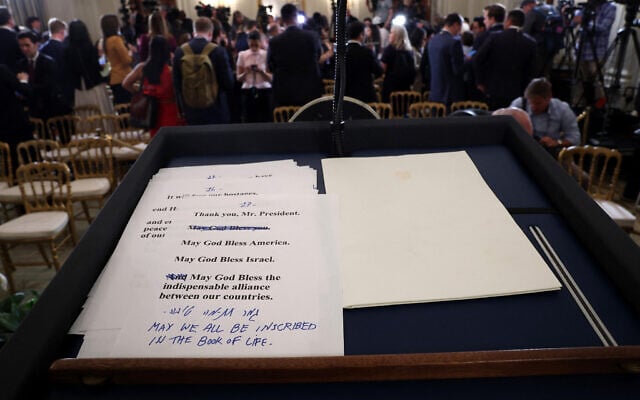 have
It w our hostages,
end H
and e
peace
of our
Thank you, Mr. President.
May God Bless you.
May God Bless America.
May God Bless Israel.
May God Bless the
indispensable alliance
between our countries.
גמר חתימה טובה.
MAY WE ALL BE INSCRIBED
IN THE BOOK OF LIFE.